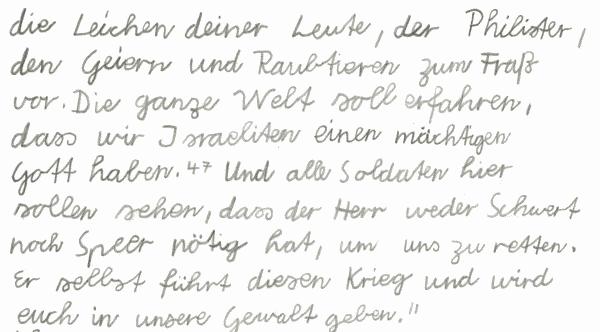 die Leichen deiner Leute, der Philister,
den Geiern und Raubtieren zum Fraß
vor. Die ganze Welt soll erfahren,
dass wir Israeliten einen mächtigen
Gott haben. 47 Und alle Soldaten hier
sollen sehen, dass der Herr weder Schwert
noch Speer nötig hat, um uns zu retten.
Er selbst führt diesen Krieg und wird
euch in unsere Gewalt geben."